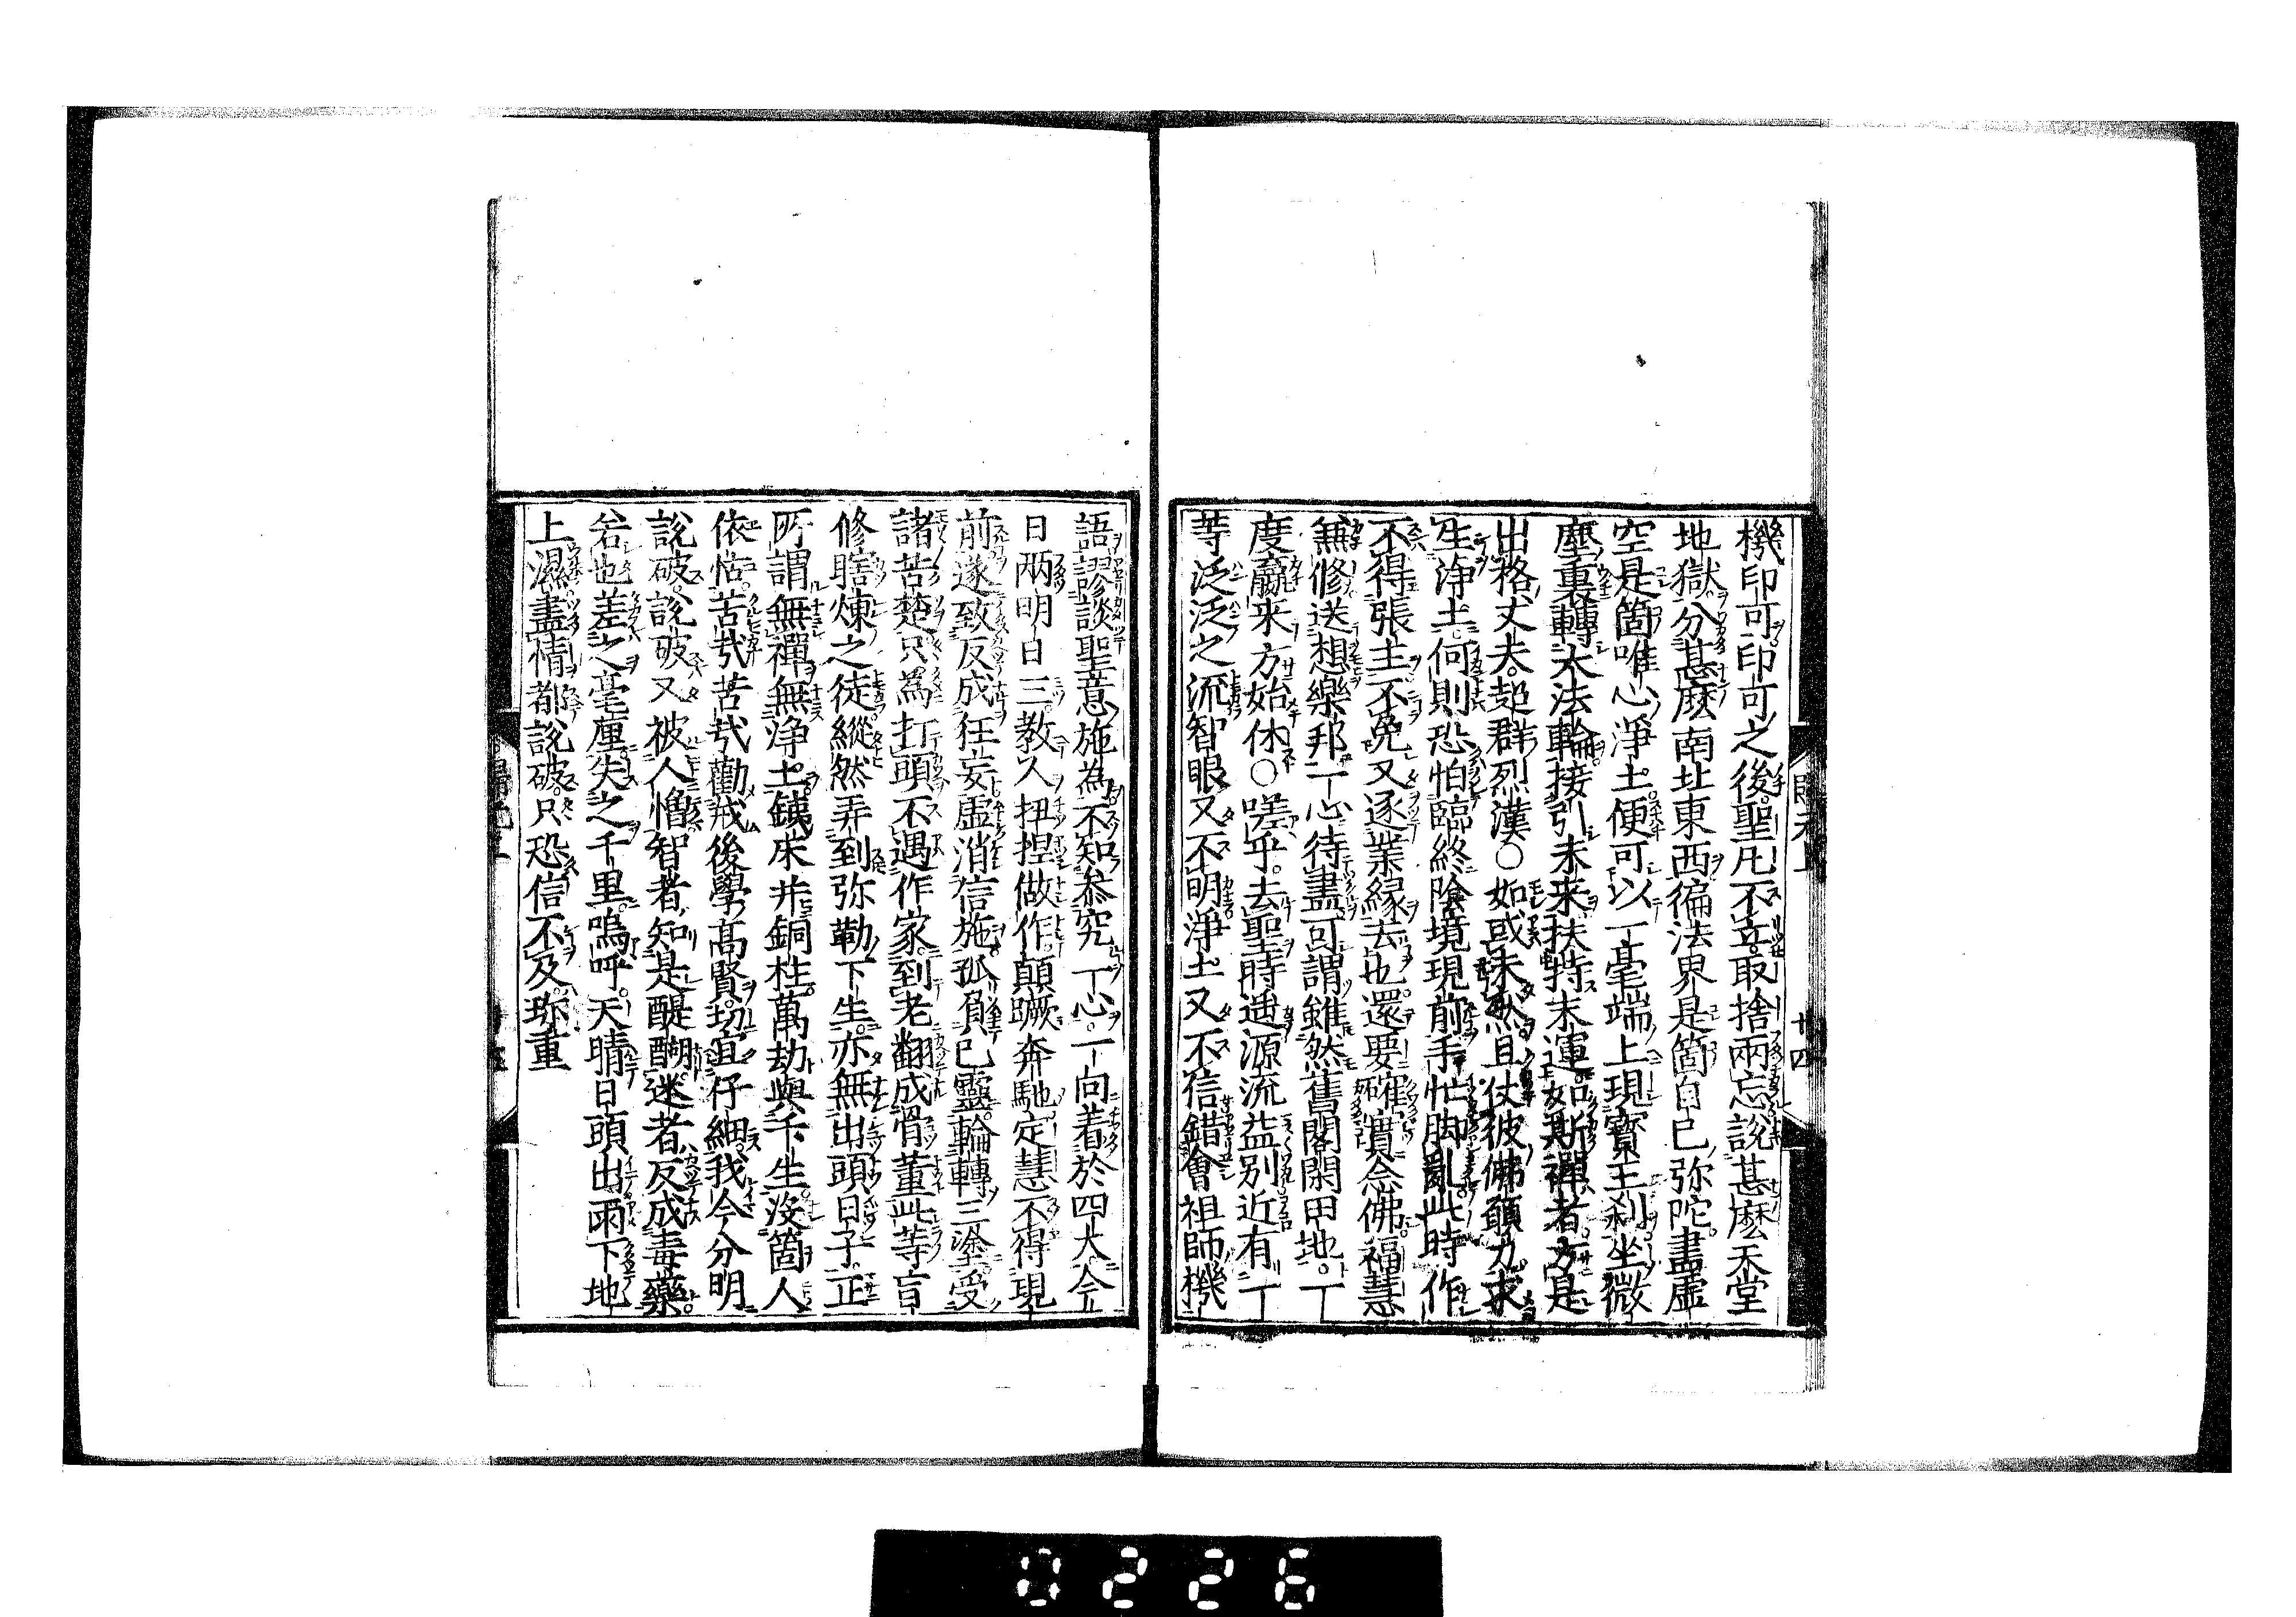 機印可印可之後聖凡不立取捨兩忘說甚麽天堂
地獄分甚麽南北東西徧法界是箇自己弥陀盡虛
空是箇唯心淨土便可以一毫端上現寶王刹坐微
塵裏轉大法輪接引未來扶持末運如斯禪者方是
出格丈夫超群烈漢○如或未然且仗彼佛願力求
生淨土何則恐怕臨終陰境現前手忙脚亂此時作
不得張主不免又逐業緣去也還要確實念佛福慧
兼修送想樂邦一心待盡可謂雖然舊閣閑田地一
度贏来方始休○嗟乎去聖時遥源流益别近有一
等泛泛之流智眼又不明淨土又不信錯會祖師機
語謬談聖意施為不知叅究一心一向着於四大今
日兩明日三教人扭捏做作顛蹶奔馳定慧不得現
前遂致反成狂妄虛消信施孤負己靈輪轉三塗受
諸苦楚只為打頭不遇作家到老翻成骨董此等盲
修瞎煉之徒縱然弄到弥勒下生亦無出頭日子正
所謂無禪無淨土鐵床并銅柱萬劫與千生没箇人
依怙苦哉苦哉勸戒後學髙賢切宜仔細我今分明
說破說破又被人憎智者知是醍醐迷者反成毒藥
若也差之毫厘失之千里嗚呼天晴日頭出雨下地
上濕盡情都說破只恐信不及珎重
廿四
0226